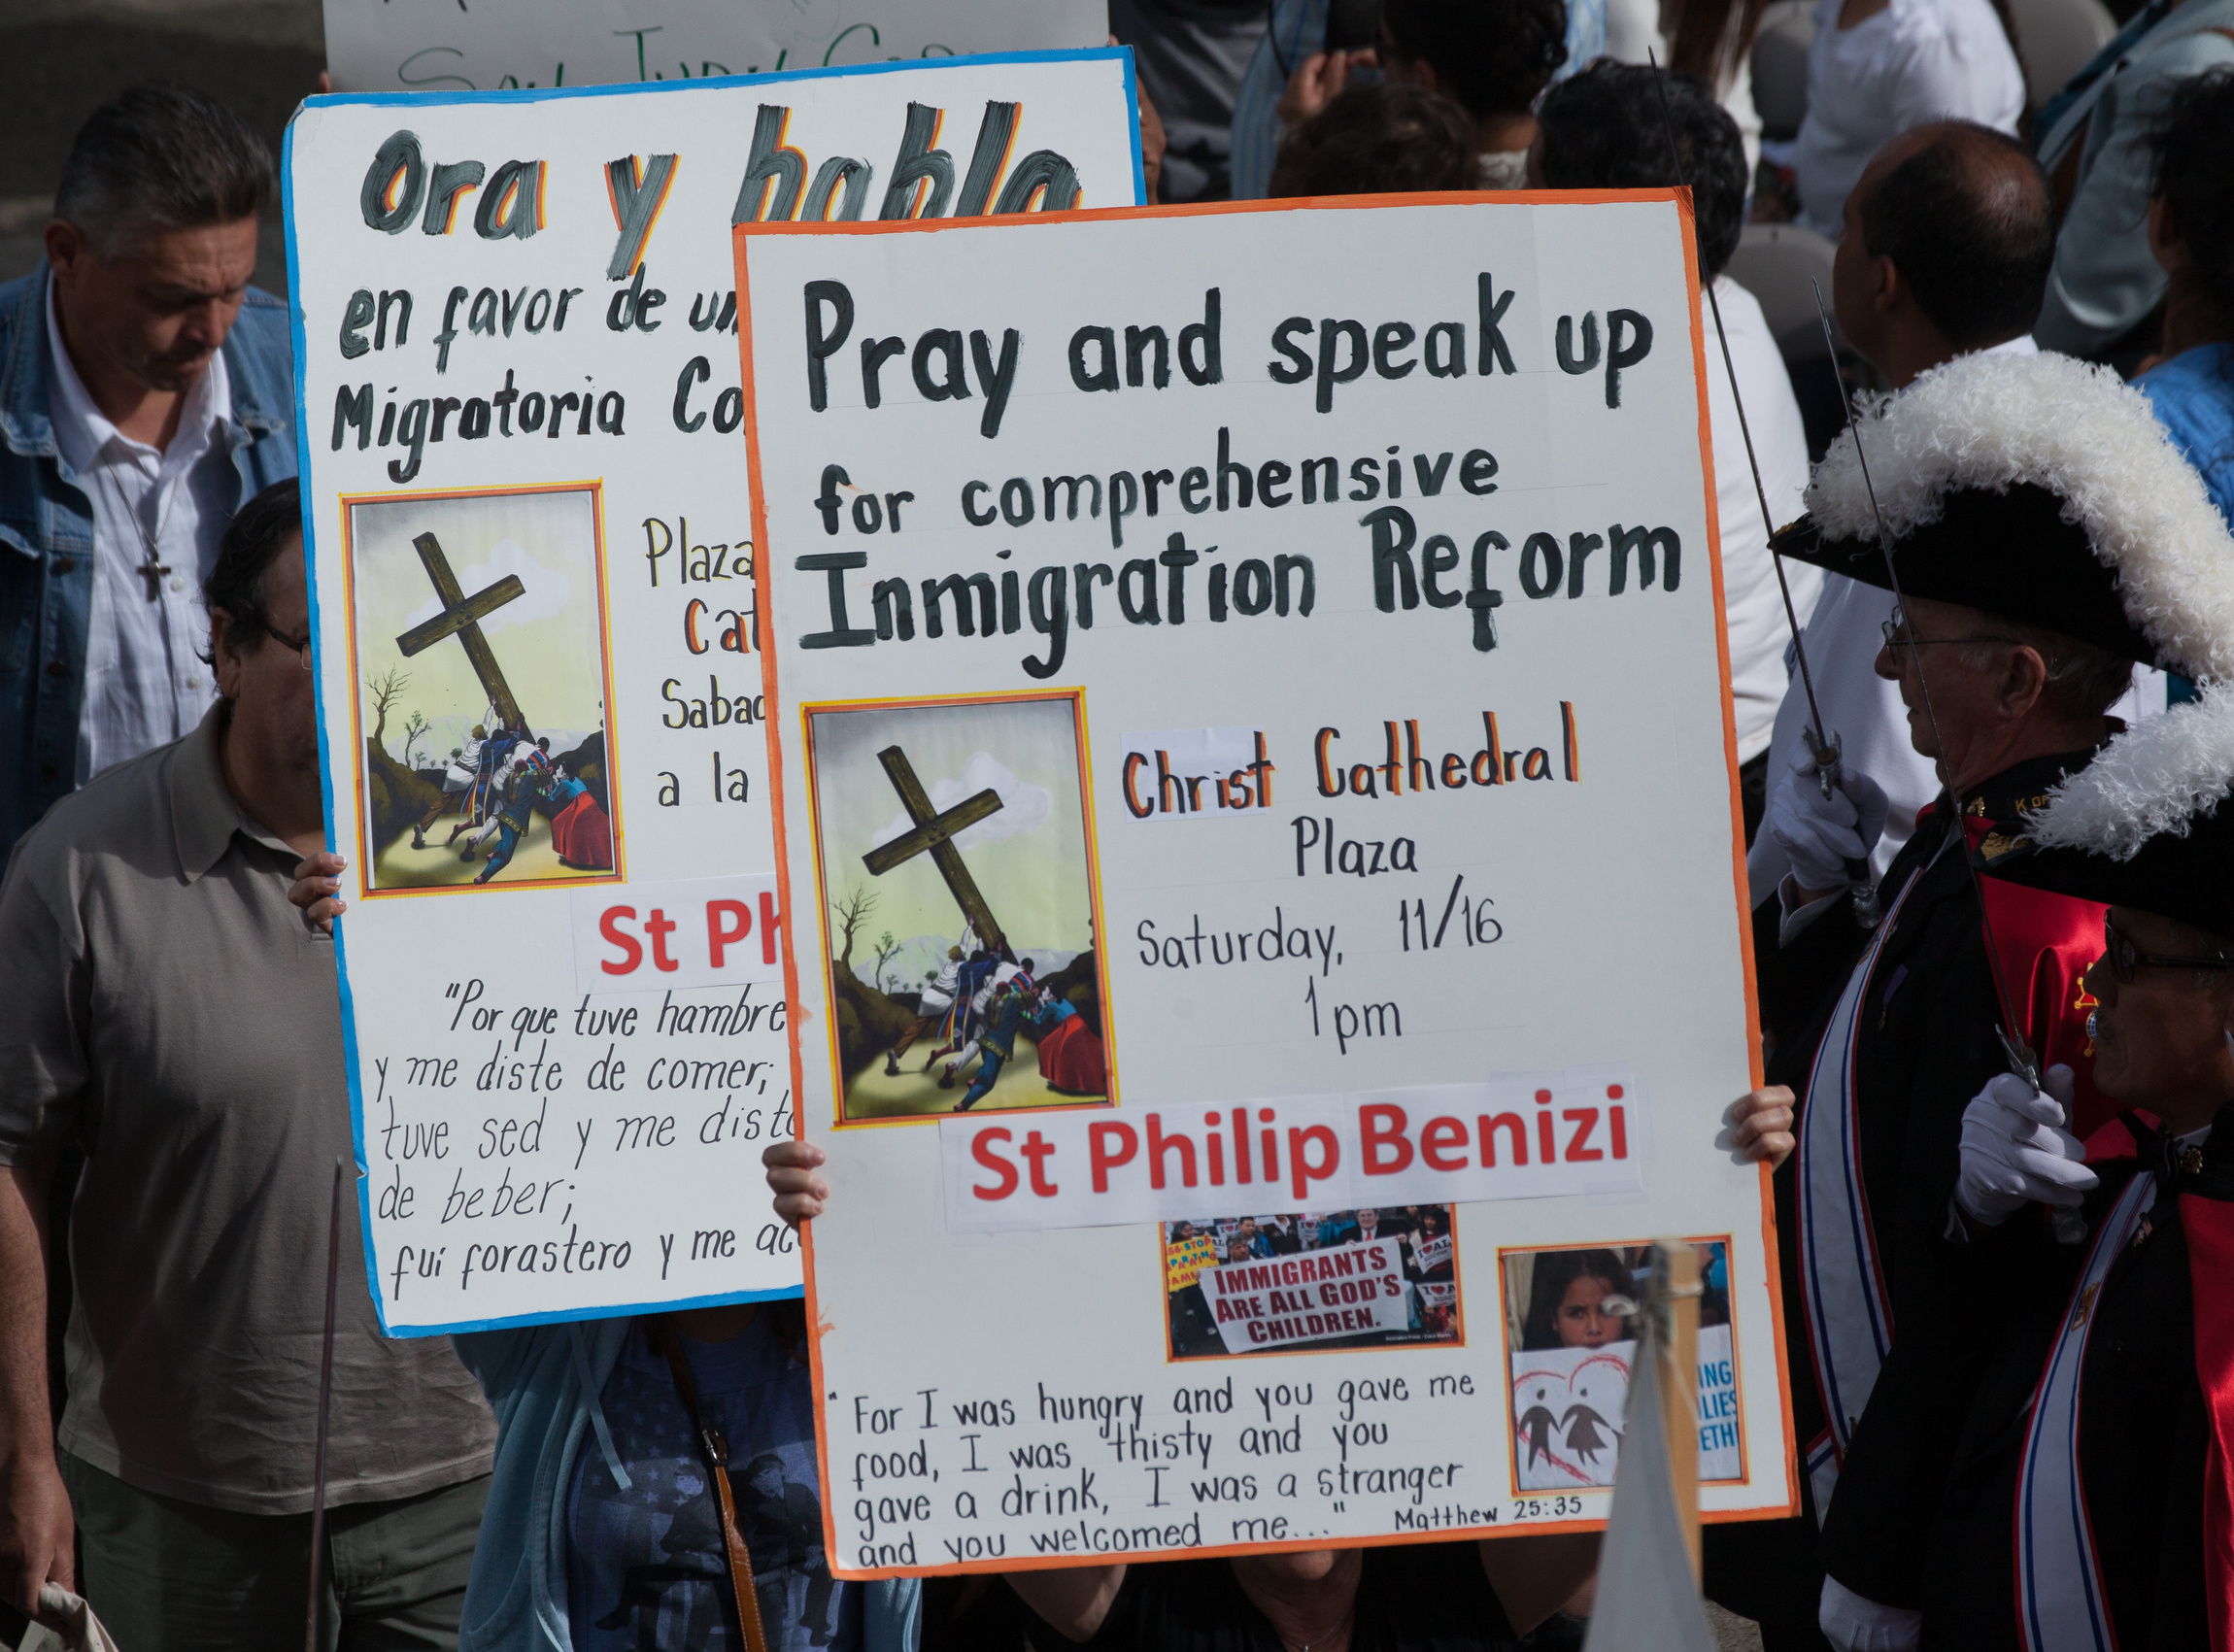 Ora y habla
en favor de un
Migratoria Co
Plaza
Cat
Sabad
a la
St Ph
"Por que tuve hambre
y me diste de comer;
tuve sed y me diste
de beber;
fui forastero y me ac
Pray and speak up
for comprehensive
Inmigration Reform
Christ Cathedral
Plaza
Saturday, 11/16
1pm
St Philip Benizi
IMMIGRANTS
ARE ALL GOD'S
CHILDREN.
ING
LIES
ETH
"For I was hungry and you gave me
food, I was thisty and you
gave a drink, I was a stranger
and you welcomed me..." Matthew 25:35
K OF